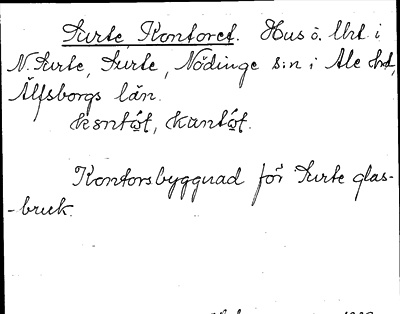 Surte, Kontoret. Hus ö. Urt. i
N. Surte, Surte, Nödinge s:n i Ale hd,
Älfsborgs län.
kontót, kantót.
Kontorsbyggnad för Surte glas-
-bruk.